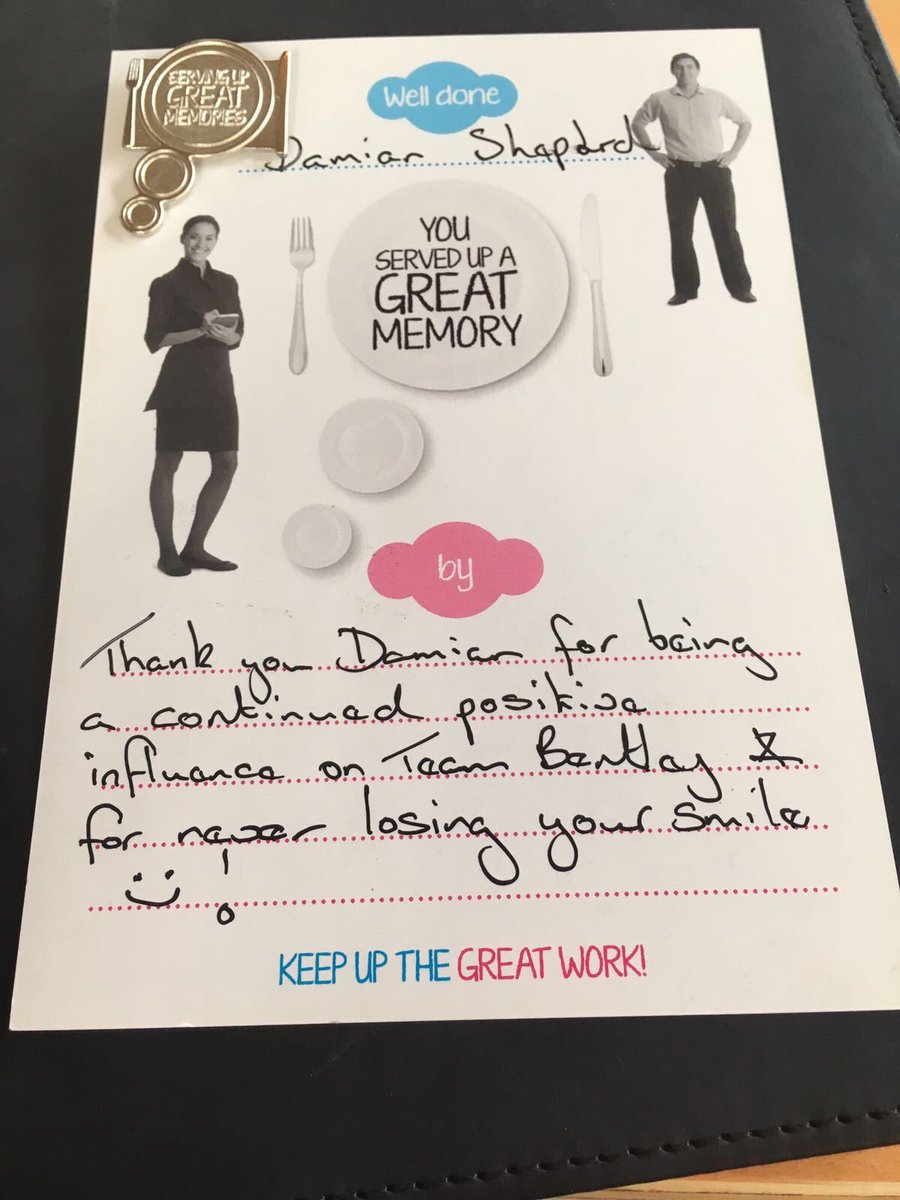 SERVING UP
GREAT
MEMORIES
Well done
Damian Sheperd
YOU
SERVED UP A
GREAT
MEMORY
by
Thank you Damian for being
a continued positive
influence on Team Bentley &
for never losing your smile
:) !
KEEP UP THE GREAT WORK!